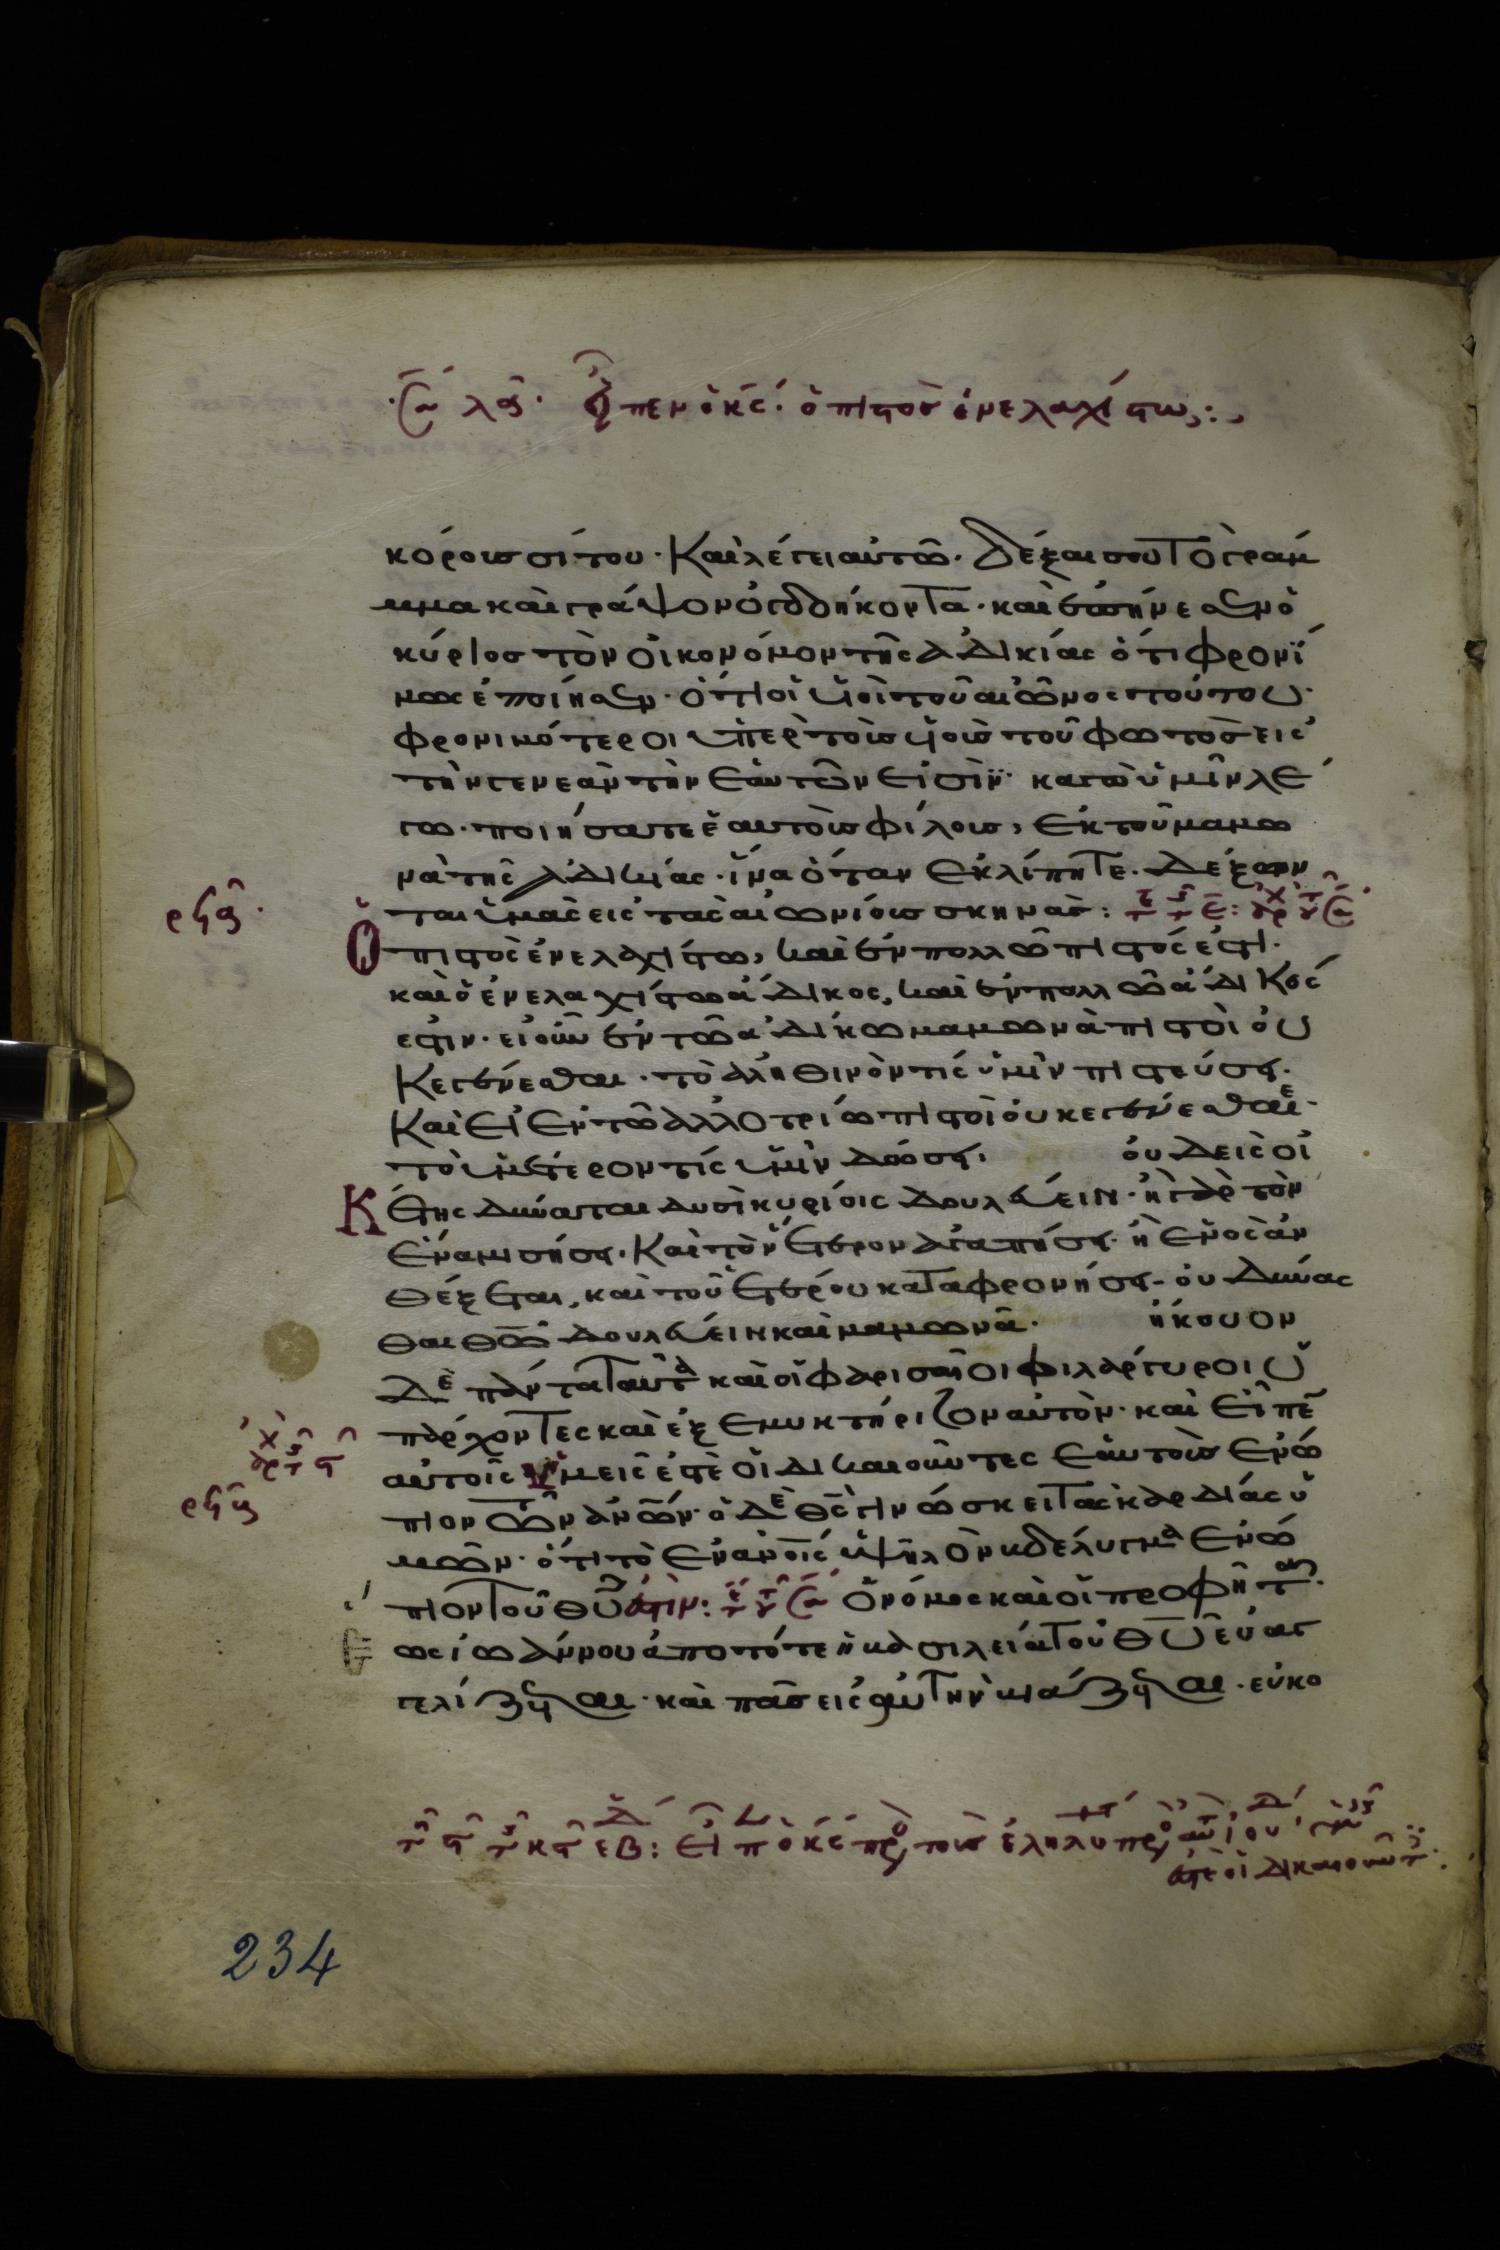 εἶπεν ὁ κς· ὁ πιστὸς ἐν ἐλαχίστω:
κόρους σίτου· Καὶ λέγει αὐτῶ· δέξαι σου τὸ γράμ
μμα καὶ γράψον ὀγδοήκοντα· καὶ ἐπήνεσεν ὁ
κύριος τὸν οἰκονόμον τῆς ἀδικίας ὅτι φρονί
μως ἐποίησεν· ὅτι οἱ υἱοὶ τοῦ αἰῶνος τούτου·
φρονιμότεροι ὑπὲρ τοὺς υἱοὺς τοῦ φωτὸς εἰς
τὴν γενεὰν τὴν ἑαυτῶν εἰσὶν· καγὼ ὑμῖν λέ
γω· ποιήσατε ἑαυτοῖς φίλους, ἐκ τοῦ μαμω
νὰ τῆς ἀδικίας· ἵνα ὅταν ἐκλίπητε· δέξων
ται ὑμᾶς εἰς τὰς αἰωνίους σκηνὰς:
Ὁ πιστὸς ἐν ἐλαχίστω, καὶ ἐν πολλῶ πιστός ἐστι·
καὶ ὁ ἐν ἐλαχίστω ἄδικος, καὶ ἐν πολλῶ ἄδικός
εστιν· εἰ οὖν ἐν τῶ ἀδίκω μαμωνὰ πιστοὶ οὐ
κ εγένεσθαι· τὸ ἀληθινὸν τίς ὑμῖν πιστεύσει·
Καὶ εἰ ἐν τῶ ἀλλοτρίω πιστοὶ ουκ εγένεσθαι·
τὸ ὑμέτερον τίς ὑμῖν δώσει· ουδεὶς οἰ
Κ έτης δύναται δυσὶ κυρίοις δουλεύειν· ἢ γὰρ τὸν
ἕνα μισήσει· Καὶ τὸν ἕτερον ἀγαπήσει· ἢ ἑνὸς ἀν
θέξεται, καὶ τοῦ ἑτέρου καταφρονήσει· ου δύνασ
θαι θῶ δουλεύειν καὶ μαμωνᾶ· ἤκουον
δὲ πάντα ταῦτα καὶ οἱ φαρισαῖοι φιλάργυροι ὑ
πάρχοντες καὶ ἐξεμυκτήριζον αὐτὸν· καὶ εἶπεν
αὐτοῖς Ὑμεῖς ἐστὲ οἱ δικαιοῦντες ἑαυτοὺς ἐνώ
πιον τῶν ἀνων· ὁ δὲ θς γινώσκει τὰς καρδίας ὑ
μῶν· ὅτι τὸ ἐν ἀνοις ὑψηλὸν βδέλυγμα ἐνώ
πιον τοῦ θυ ἐστιν: Ὁ νόμος καὶ οἱ προφῆται
ως ιωάννου ἀπο τότε ἡ βασιλεία τοῦ θυ εὐαγ
γελίζεται· καὶ πᾶς εἰς αὐτὴν βιάζεται· εὐκο
εἶπ ὁ κς πρ τοὺς ἐληλυ πρ
ἐστε οἱ δικαιουντ
234